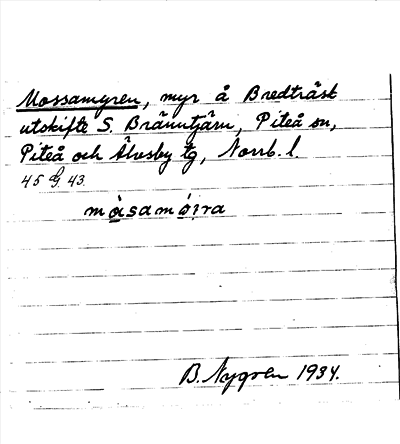 Mossamyren, myr å Bredträsk
utskifte S. Bränntjärn, Piteå sn,
Piteå och Älvsby tg, Norrb. l.
45 G. 43.
måsamó̤i̤ra
B. Nygren 1934.